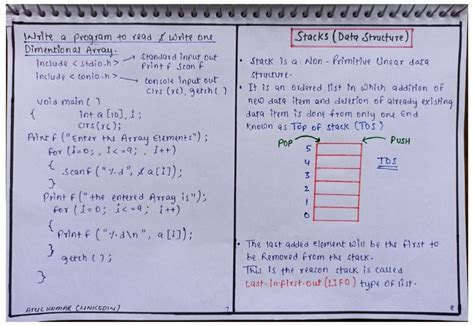 Write a program to read & write one
Dimentional Array.
include <stdio.h> → Standard input out
Printf Scanf
include <conio.h> → Console input out
Clrs (rc), getch ( )
void main ( )
{ int a [10], i;
Clrs (rc);
Printf ("Enter the Array Elements");
for (i=0; i<=9; i++)
{
Scanf ("%d", &a[i]);
}
Printf ("the entered Array is");
for (i=0; i<=9, i++)
{
Printf ("%d\n", a[i]);
}
getch ( );
}
ATUL KUMAR (LINKEDIN)
7
Stacks (Data Structure)
• Stack is a Non-Primitive linear data
structure.
• It is an ordered list in which addition of
new data item and deletion of already existing
data item is done from only one End
known as Top of stack (TOS)
POP PUSH
5
4 TOS
3
2
1
0
• The last added element will be the first to
be Removed from the stack.
This is the reason stack is called
Last-in-first-out (LIFO) type of list.
8